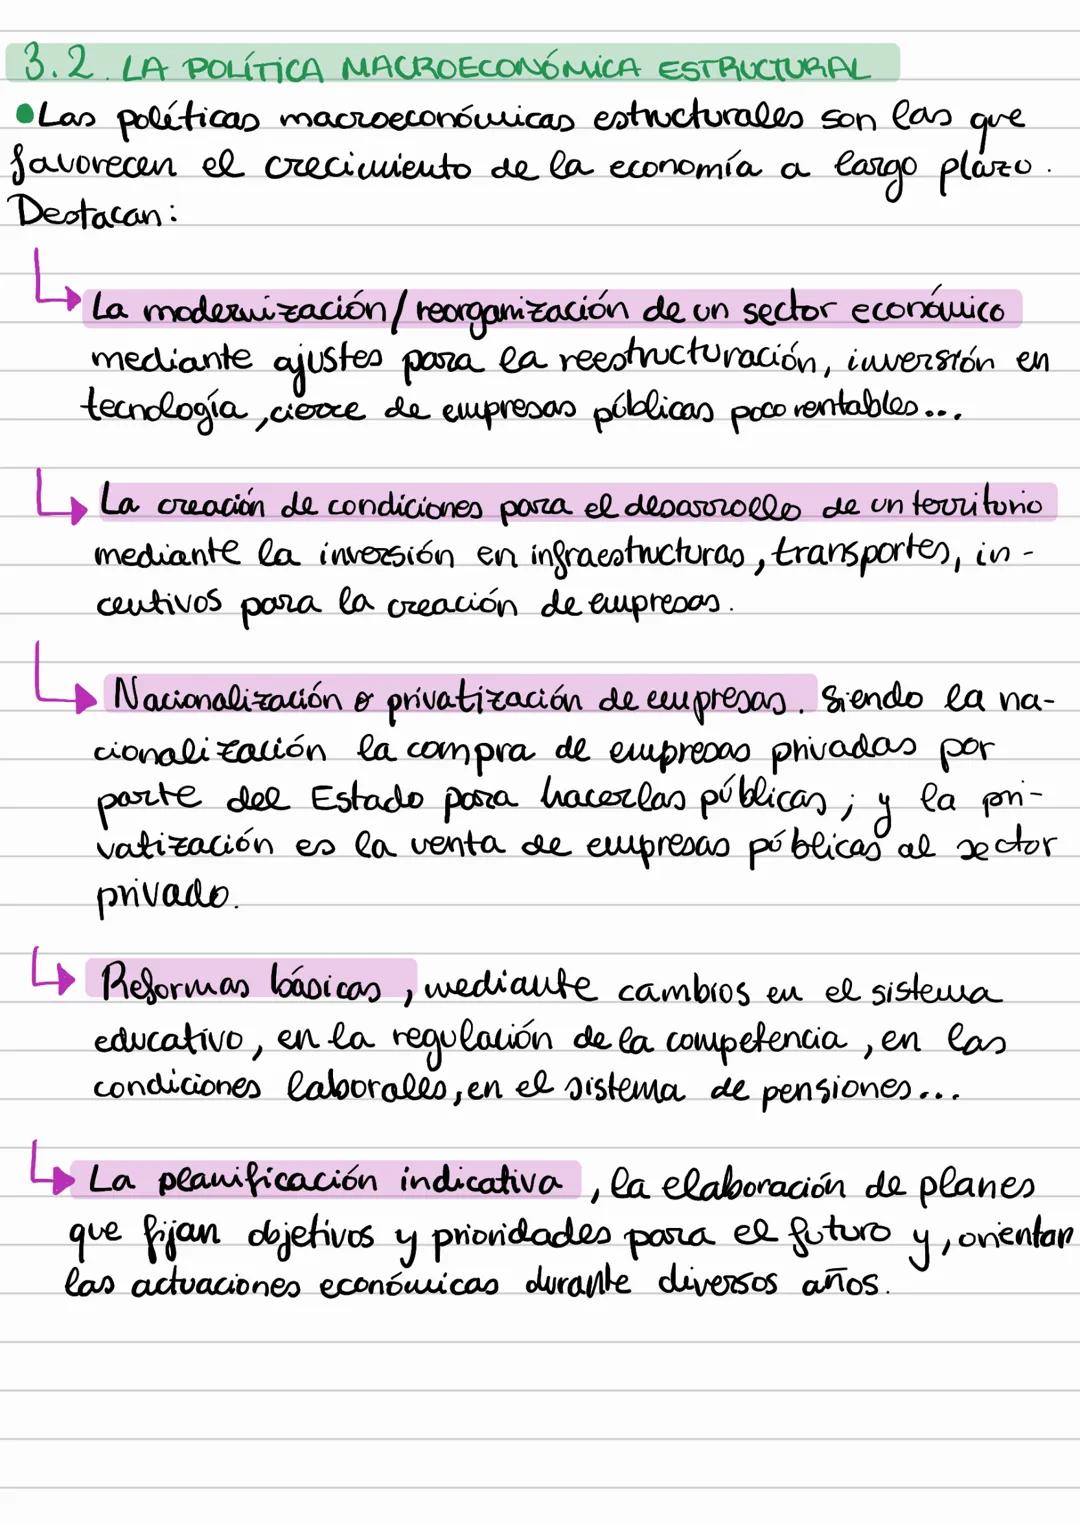 3.2. LA POLÍTICA MACROECONÓMICA ESTRUCTURAL
•Las políticas macroeconómicas estructurales son las que
favorecen el crecimiento de la economía a largo plazo.
Destacan:
La modernización/reorganización de un sector económico
mediante ajustes para la reestructuración, inversión en
tecnología, cierre de empresas públicas poco rentables...
La creación de condiciones para el desarrollo de un territorio
mediante la inversión en infraestructuras, transportes, in-
centivos para la creación de empresas.
Nacionalización o privatización de empresas. Siendo la na-
cionalización la compra de empresas privadas por
parte del Estado para hacerlas públicas; y la pri-
vatización es la venta de empresas públicas al sector
privado.
Reformas básicas, mediante cambios en el sistema
educativo, en la regulación de la competencia, en las
condiciones laborales, en el sistema de pensiones...
La planificación indicativa, la elaboración de planes
que fijan objetivos y prioridades para el futuro y, orientar
las actuaciones económicas durante diversos años.